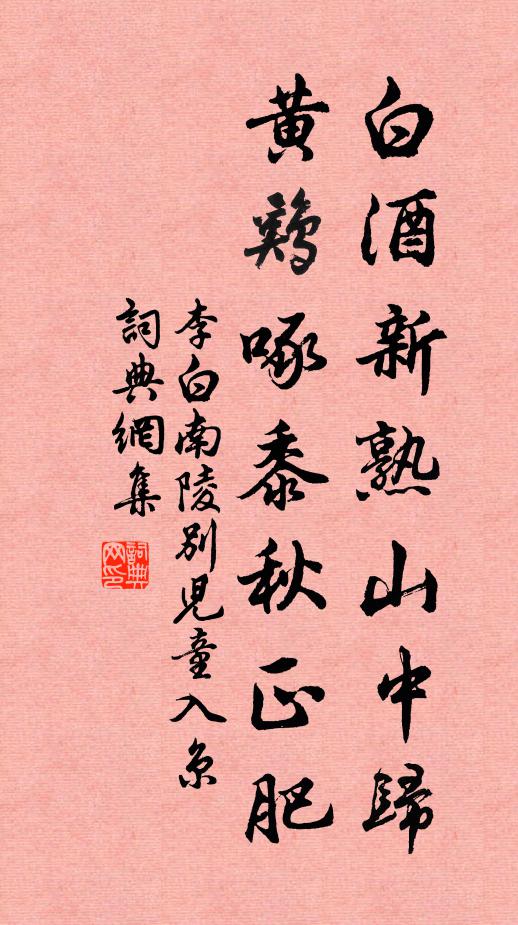 白酒新熟山中歸
黄鷄啄黍秋正肥
李白南陵别兒童入京
詞典網集
詞典網印